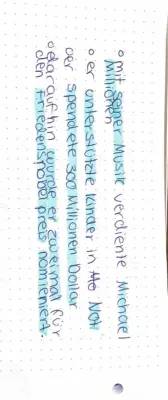 o mit seiner Musik verdiente Michael
Millionen
o er unterstützte Kinder in Not
er spendete 300 Millionen Dollar
o daraufhin wurde er zweimal für
den Friedensnobelpreis nominiert.